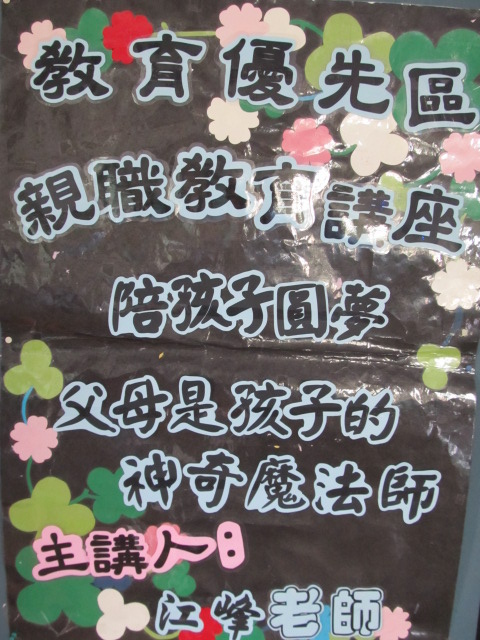 教育優先區
親職教育講座
陪孩子圓夢
父母是孩子的
神奇魔法師
主講人：
江峰老師